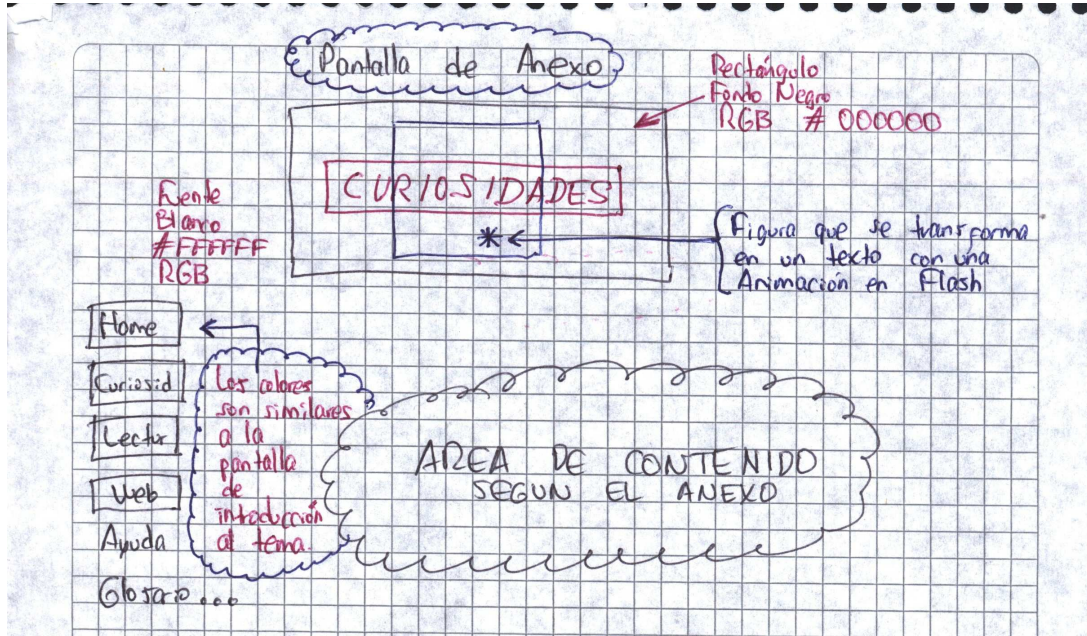 Pantalla de Anexo
Rectángulo
Fondo Negro
RGB # 000000
CURIOSIDADES
Fuente
Blanco
#FFFFFF
RGB
*
Figura que se transforma
en un texto con una
Animación en Flash
Home
Curiosid
Lectur
Web
Ayuda
Glosario...
Los colores
son similares
a la
pantalla
de
intoducción
al tema.
AREA DE CONTENIDO
SEGUN EL ANEXO